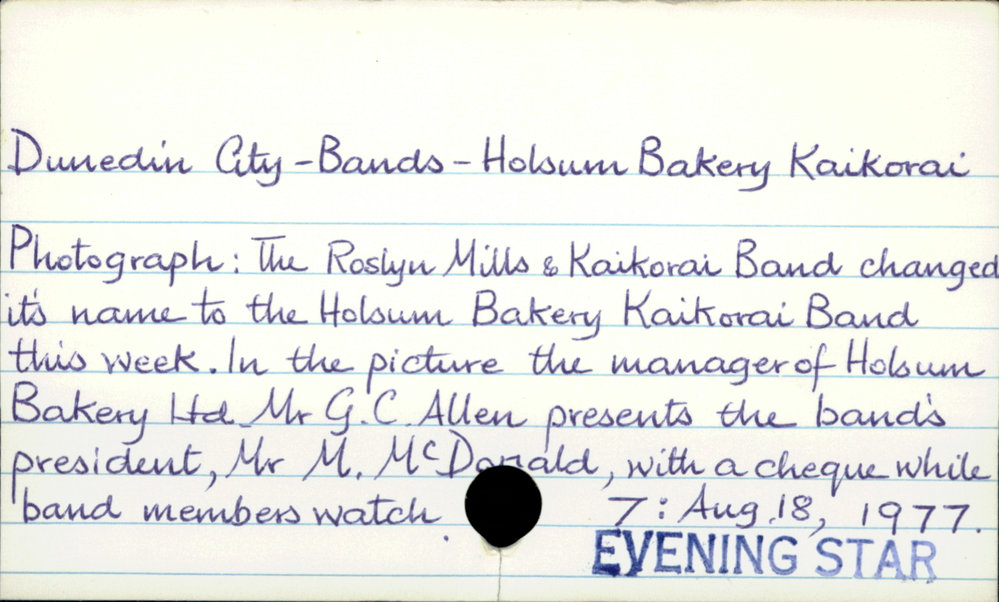 Dunedin City - Bands - Holsum Bakery Kaikorai
Photograph: The Roslyn Mills & Kaikorai Band changed
it's name to the Holsum Bakery Kaikorai Band
this week. In the picture the manager of Holsum
Bakery Ltd Mr G.C. Allen presents the band's
president, Mr M. McDonald, with a cheque while
band members watch.
7: Aug.18, 1977.
EVENING STAR